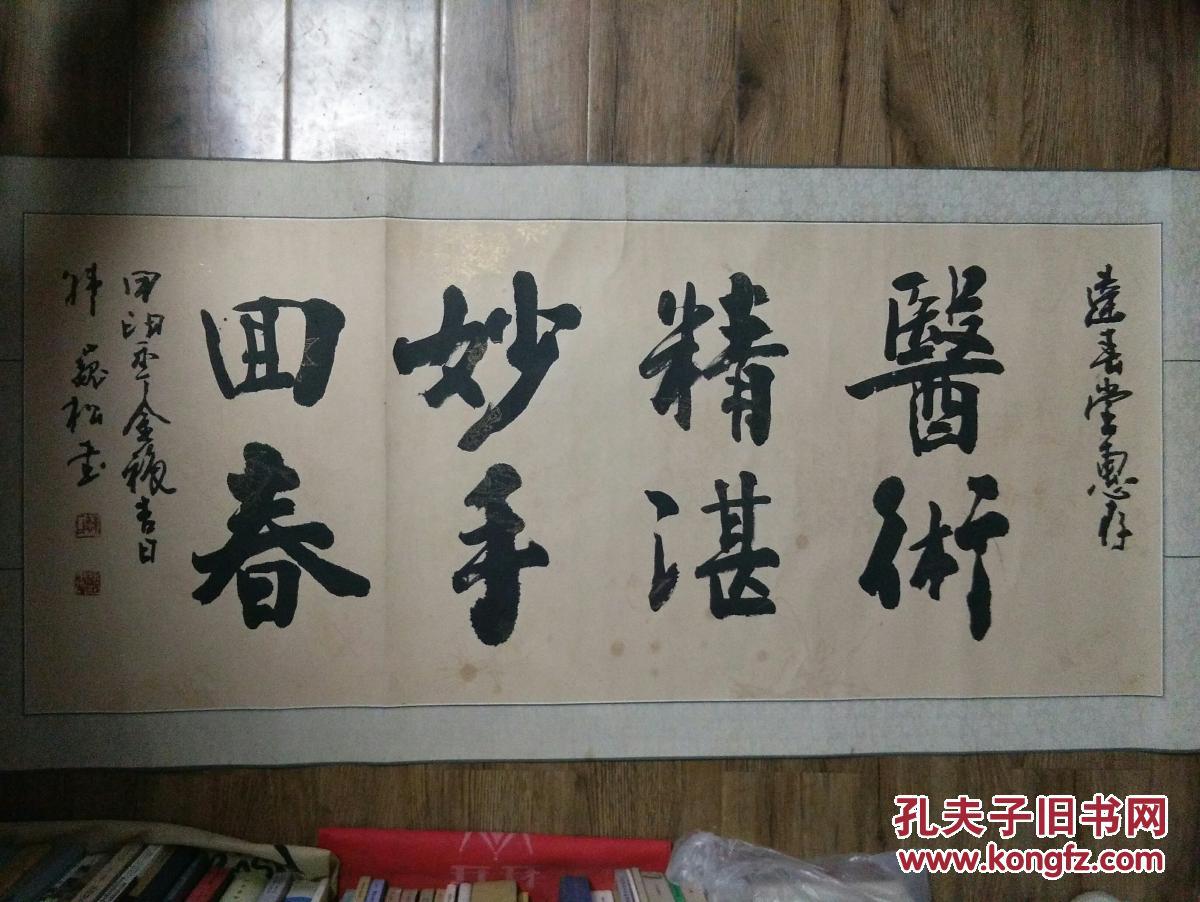 達春堂惠存
醫術
精湛
妙手
回春
甲申季金穐吉日
韩巍松书
孔夫子旧书网
www.kongfz.com